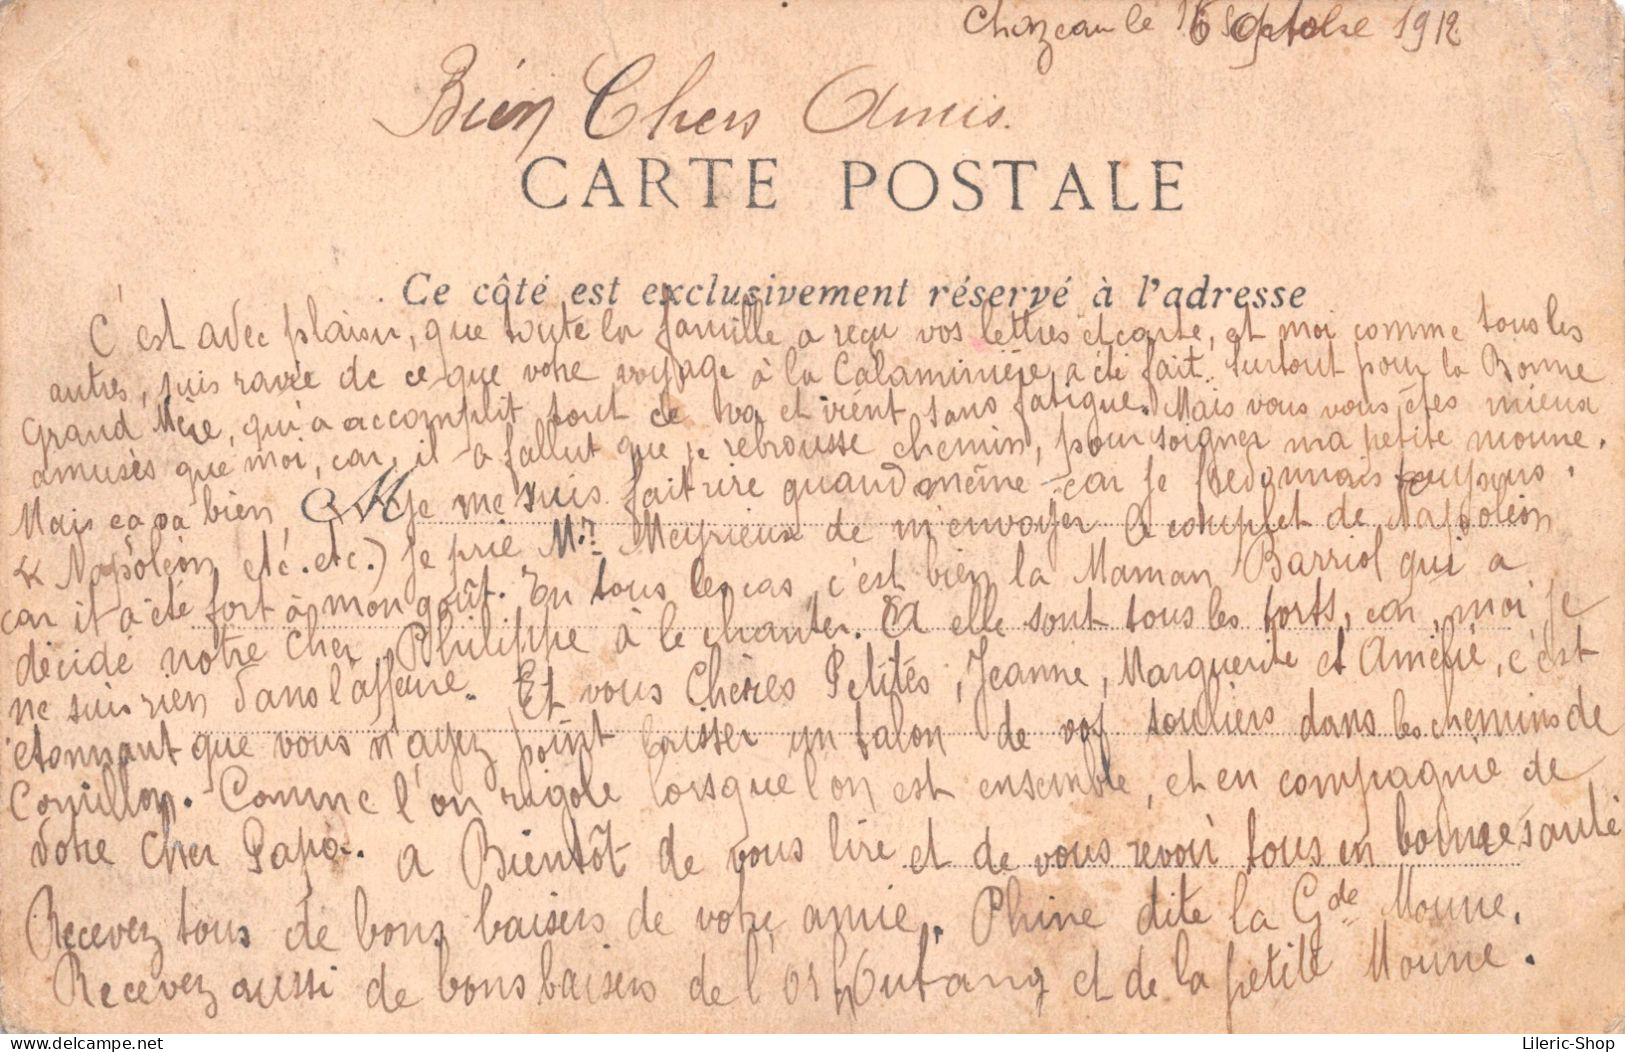 Chazeau le 16 Octobre 1912
Bien Chers Amis.
CARTE POSTALE
Ce côté est exclusivement réservé à l'adresse
C'est avec plaisir, que toute la famille a reçu vos lettres et carte, et moi comme tous les
autres, suis ravie de ce que votre voyage à la Calaminière, a été fait. surtout pour la Bonne
Grand Mère, qui a accomplit tout ce va et vient sans fatigue. Mais vous vous êtes mieux
amusés que moi, car, il a fallut que je rebrousse chemin, pour soigner ma petite moune.
Mais ça va bien, je me suis fait rire quand même car je fredonnais toujours.
Napoléon etc. etc.) je prie Mr. Meyrieux de m'envoyer le complet de Napoléon
car il a été fort à mon goût. En tous les cas, c'est bien la Maman Barriol qui a
décidé notre Cher Philippe à le chanter. A elle sont tous les torts, car, moi je
ne suis rien dans l'affaire. Et vous Chères Petites, Jeanne, Marguerite et Amélie, c'est
étonnant que vous n'ayez point laisser un talon de vos souliers dans les chemins de
Cornillon. Comme l'on rigole lorsque l'on est ensemble, et en compagnie de
votre Cher Papa. A Bientôt de vous lire et de vous revoir tous en bonne santé
Recevez tous de bons baisers de votre amie. Phine dite la Gde Moune.
Recevez aussi de bons baisers de l'Orhoutang et de la petite Moune.
Lileric-Shop
delcampe.net